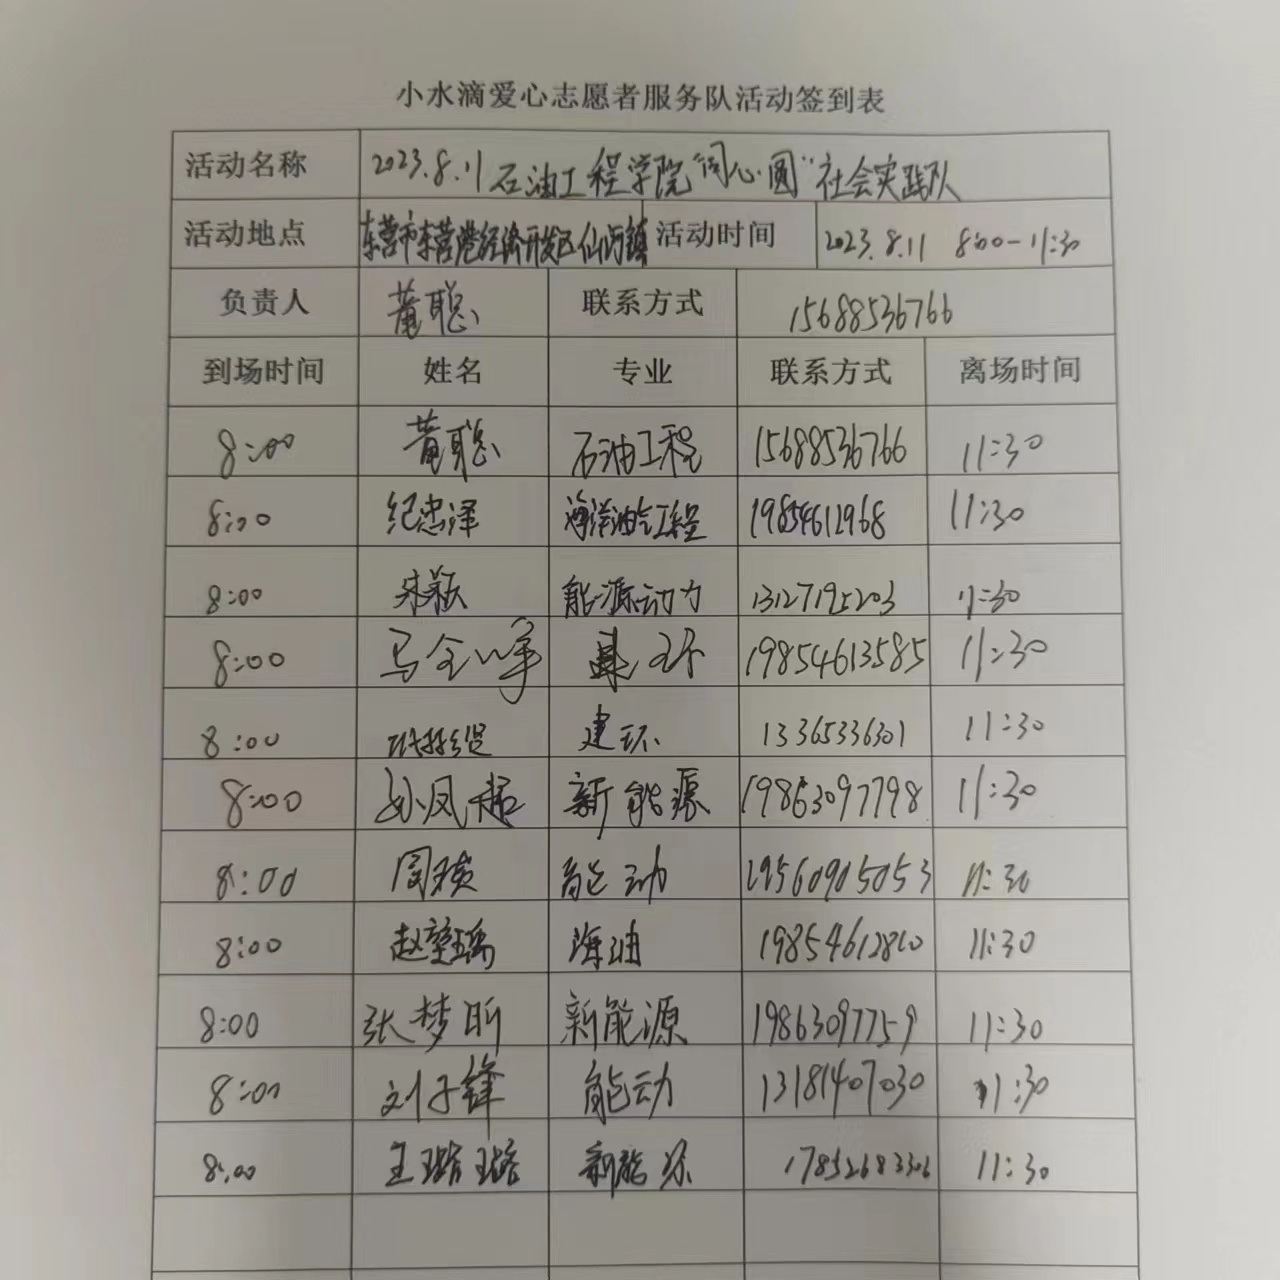 小水滴爱心志愿者服务队活动签到表
活动名称 2023.8.11 石油工程学院"同心圆"社会实践队
活动地点 东营市东营港经济开发区仙河镇 活动时间 2023.8.11 8:00-11:30
负责人 黄聪 联系方式 15688536766
到场时间 姓名 专业 联系方式 离场时间
8:00 黄聪 石油工程 15688536766 11:30
8:00 纪忠泽 海洋油气工程 19854612968 11:30
8:00 宋颖 能源动力 13127195203 11:30
8:00 马全峰 建环 19854613585 11:30
8:00 建环 13365336301 11:30
8:00 孙凤 新能源 19863097798 11:30
8:00 周 能动 19560905053 11:30
8:00 赵 海油 19854612810 11:30
8:00 张梦昕 新能源 19863097759 11:30
8:00 刘子锋 能动 13181407030 11:30
8:00 王璐璐 新能源 17852683306 11:30